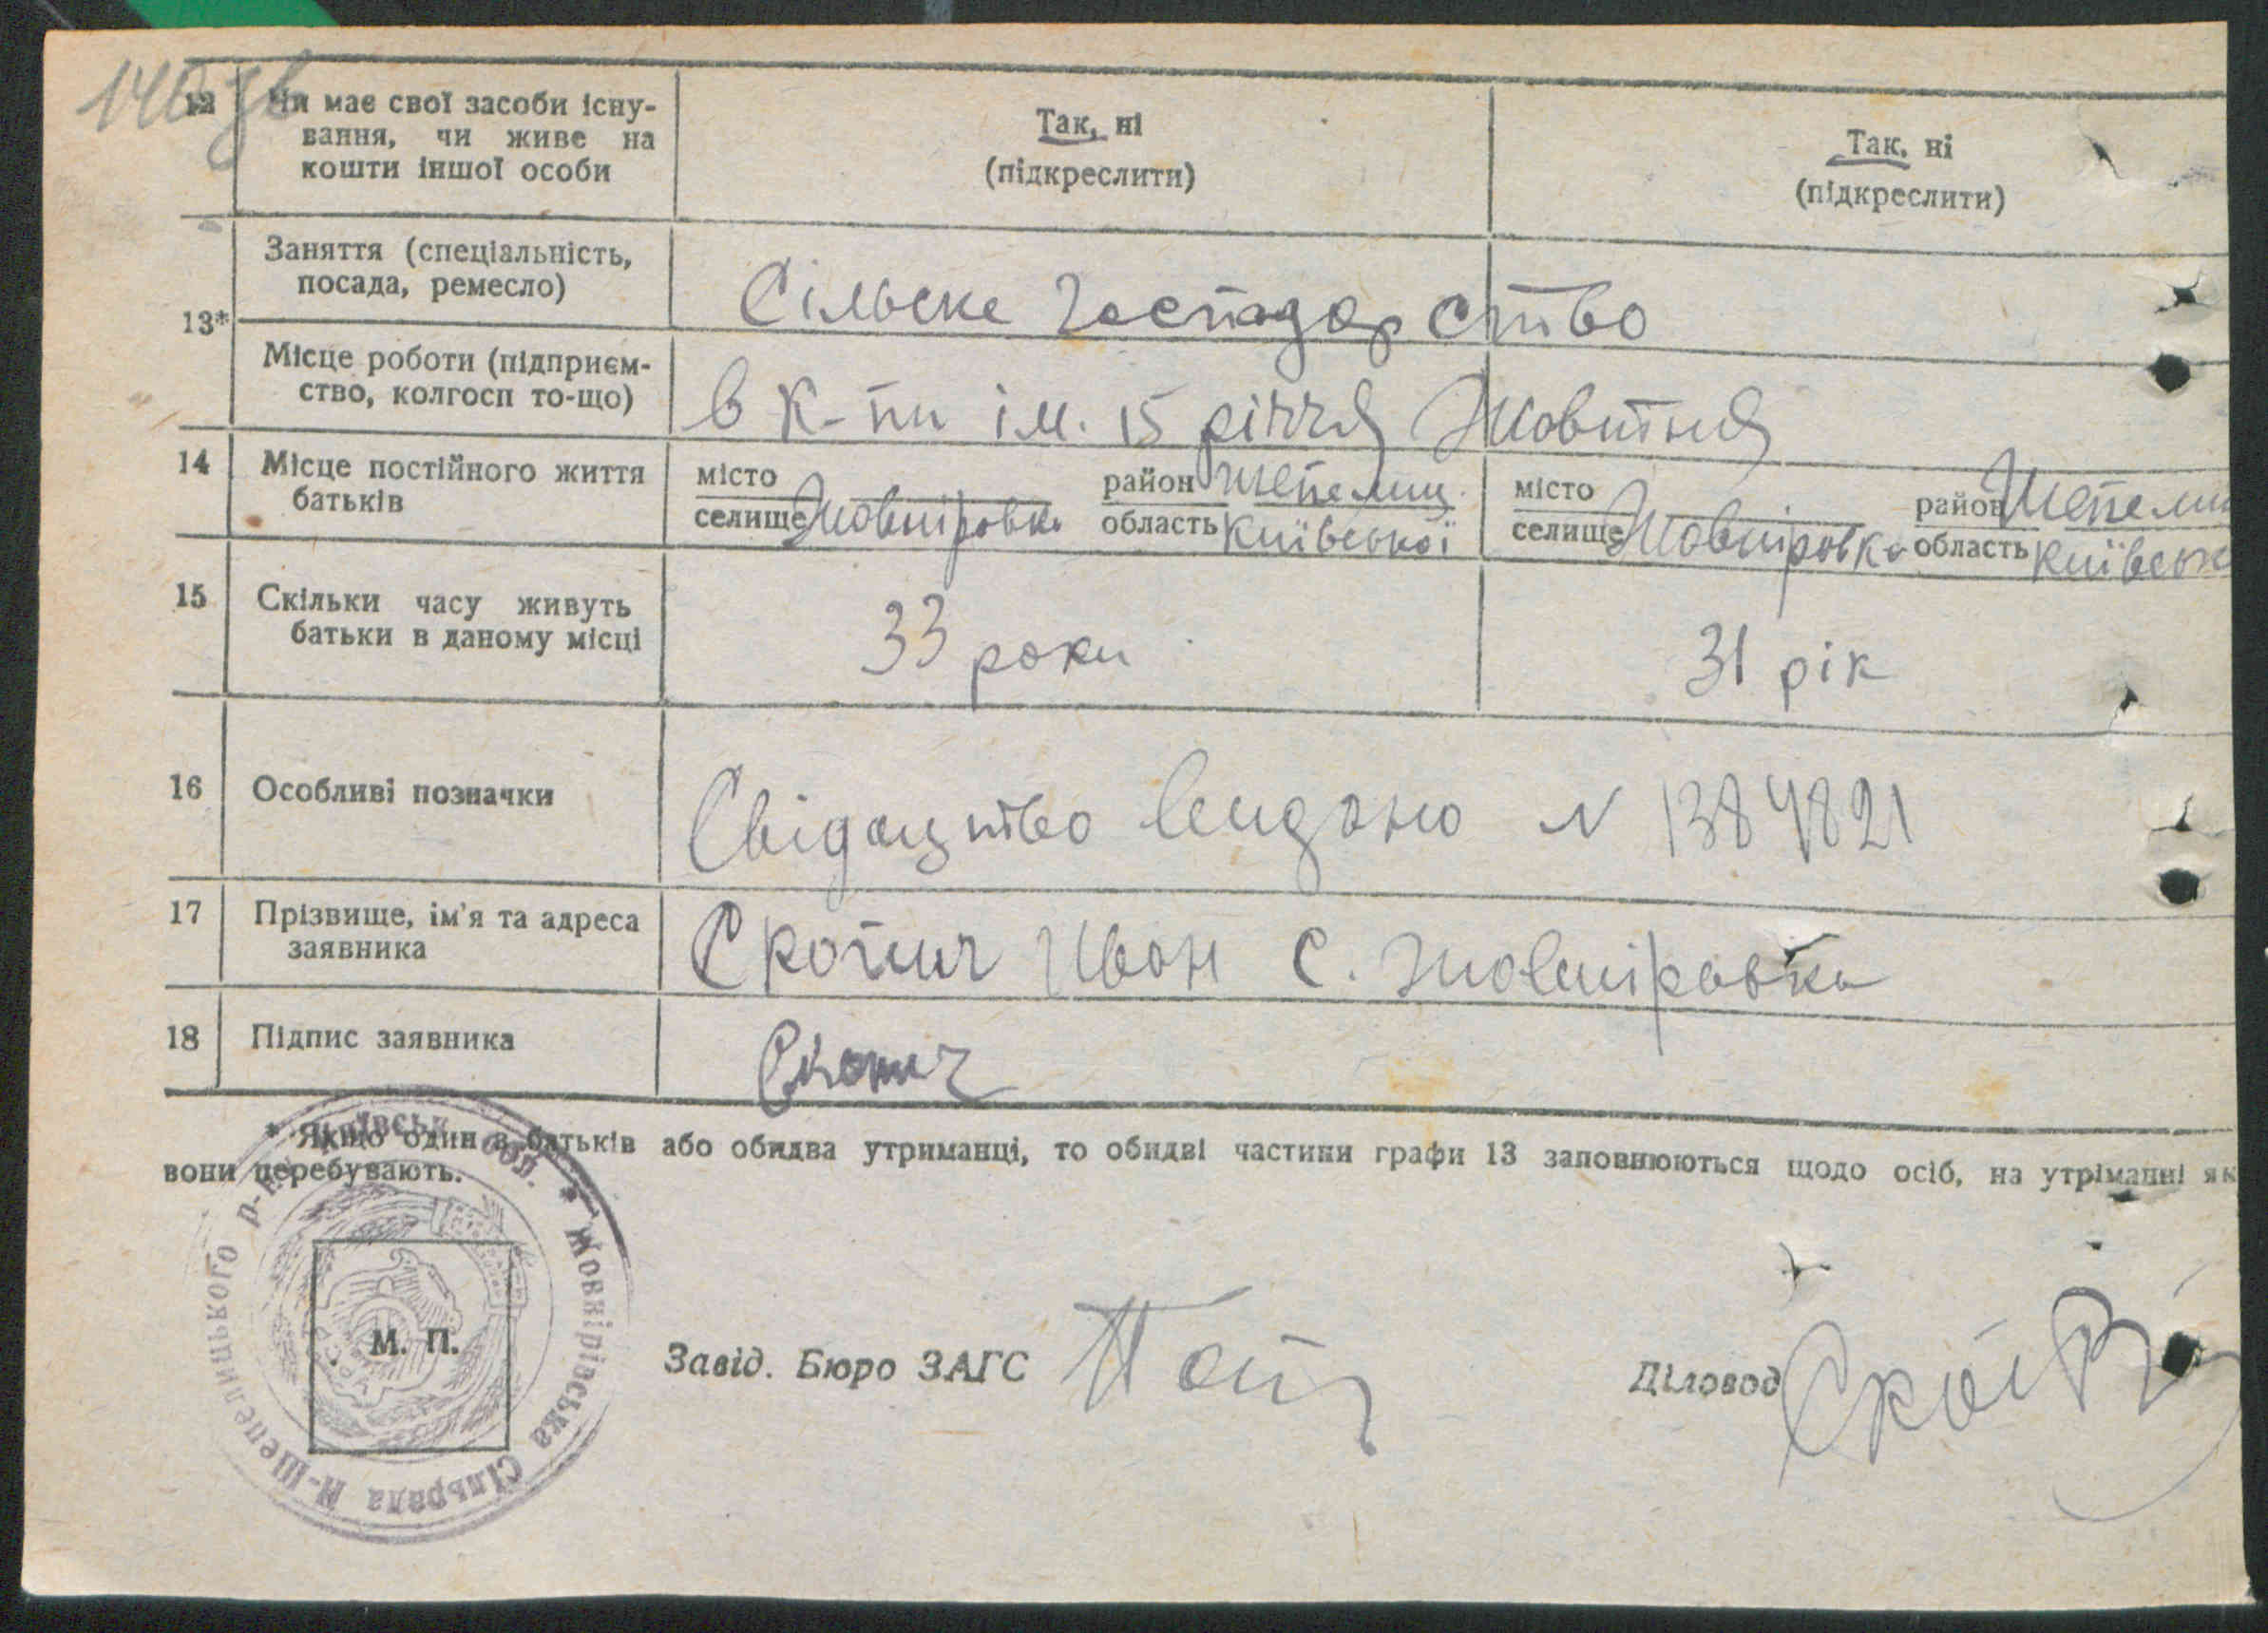 146 зв
12 Чи має свої засоби існу-
вання, чи живе на
кошти іншої особи
Так, ні
(підкреслити)
Так, ні
(підкреслити)
13*
Заняття (спеціальність,
посада, ремесло)
Сільске господарство
Місце роботи (підприєм-
ство, колгосп то-що)
в к-пи ім. 15 річчя Жовтня
14 Місце постійного життя
батьків
місто
селище Жовніровка
район Шепелиц.
область Київської
місто
селище Жовніровка
район Шепели
область Київськ
15 Скільки часу живуть
батьки в даному місці
33 роки
31 рік
16 Особливі позначки
Свідацтво видано N 1384821
17 Прізвище, ім'я та адреса
заявника
Скопич Иван с. Жовніровка
18 Підпис заявника
Скопич
* Якщо один з батьків або обидва утриманці, то обидві частини графи 13 заповнюються щодо осіб, на утріманні як
вони перебувають.
Жовнірівська Сільрада Н-Шепелицького р-ну Київськ. обл.
М. П.
Завід. Бюро ЗАГС
Діловод